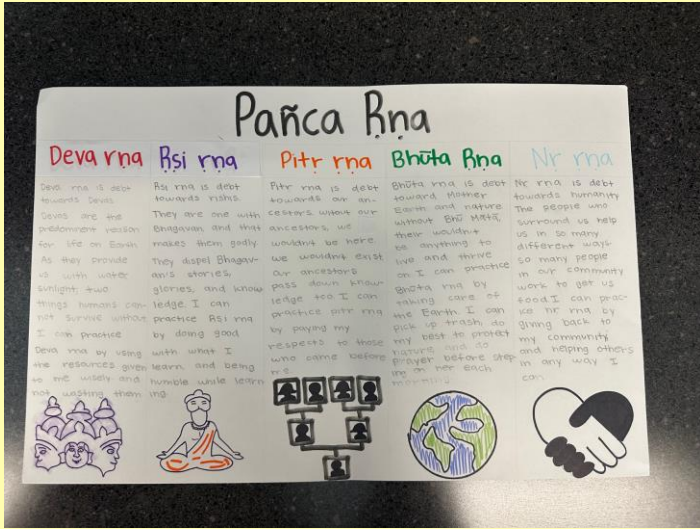 Pañca Ṛṇa
Deva ṛṇa
Deva rna is debt
towards Devas
Devas are the
predominent reason
for life on Earth
As they provide
us with water
sunlight; two
things humans can-
not survive without
I can practice
Deva rna by using
the resources given
to me wisely and
not wasting them
Ṛṣi ṛṇa
Rsi rna is debt
towards rishis.
They are one with
Bhagavan and that
makes them godly.
They dispel Bhagav-
an's stories,
glories, and know-
ledge. I can
practice Rsi rna
by doing good
with what I
learn and being
humble while learn
ing.
Pitṛ ṛṇa
Pitr rna is debt
towards our an-
cestors. without our
ancestors, we
wouldn't be here.
we wouldn't exist
Our ancestors
pass down know-
ledge too. I can
practice pitr rna
by paying my
respects to those
who came before
me.
Bhūta Ṛṇa
Bhūta rna is debt
toward Mother
Earth and nature
without Bhū Mātā,
their wouldn't
be anything to
live and thrive
on. I can practice
Bhūta rna by
taking care of
the Earth. I can
pick up trash, do
my best to protect
nature, and do
prayer before step
ing on her each
morning
Nṛ ṛṇa
Nr rna is debt
towards humanity
The people who
surround us help
us in so many
different ways
so many people
in our community
work to get us
food. I can prac-
ice nr rna by
giving back to
my community
and helping others
in any way I
can.